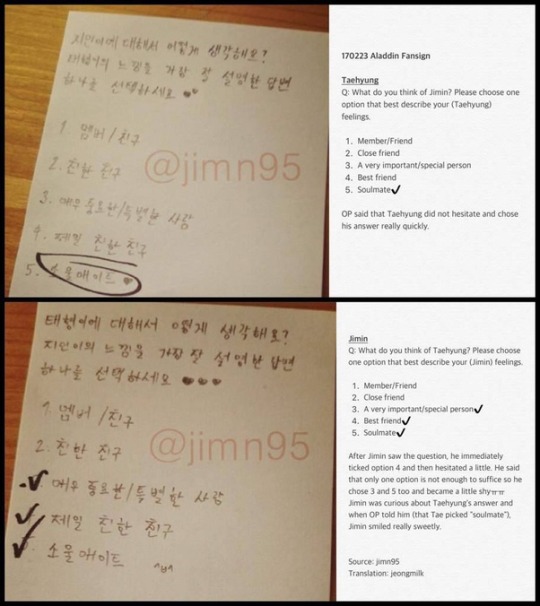 지민이에 대해서 어떻게 생각해요?
태형이의 느낌을 가장 잘 설명한 답변
하나을 선택하세요 ♥♥
1. 멤버/친구
2. 친한 친구
@jimn95
3. 매우 중요한/특별한 사람
4. 제일 친한 친구
5. 소울매이트 ♥
170223 Aladdin Fansign
Taehyung
Q: What do you think of Jimin? Please choose one
option that best describe your (Taehyung)
feelings.
1. Member/Friend
2. Close friend
3. A very important/special person
4. Best friend
5. Soulmate✔
OP said that Taehyung did not hesitate and chose
his answer really quickly.
태형이에 대해서 어떻게 생각해요?
지민이의 느낌을 가장 잘 설명한 답변
하나을 선택하세요 ♥♥♥
1. 멤버/친구
2. 친한 친구
@jimn95
✔ 매우 중요한/특별한 사람
✔ 제일 친한 친구
✔ 소울매이트
Jimin
Q: What do you think of Taehyung? Please choose
one option that best describe your (Jimin) feelings.
1. Member/Friend
2. Close friend
3. A very important/special person✔
4. Best friend✔
5. Soulmate✔
After Jimin saw the question, he immediately
ticked option 4 and then hesitated a little. He said
that only one option is not enough to suffice so he
chose 3 and 5 too and became a little shyㅠㅠ
Jimin was curious about Taehyung's answer and
when OP told him (that Tae picked "soulmate"),
Jimin smiled really sweetly.
Source: jimn95
Translation: jeongmilk